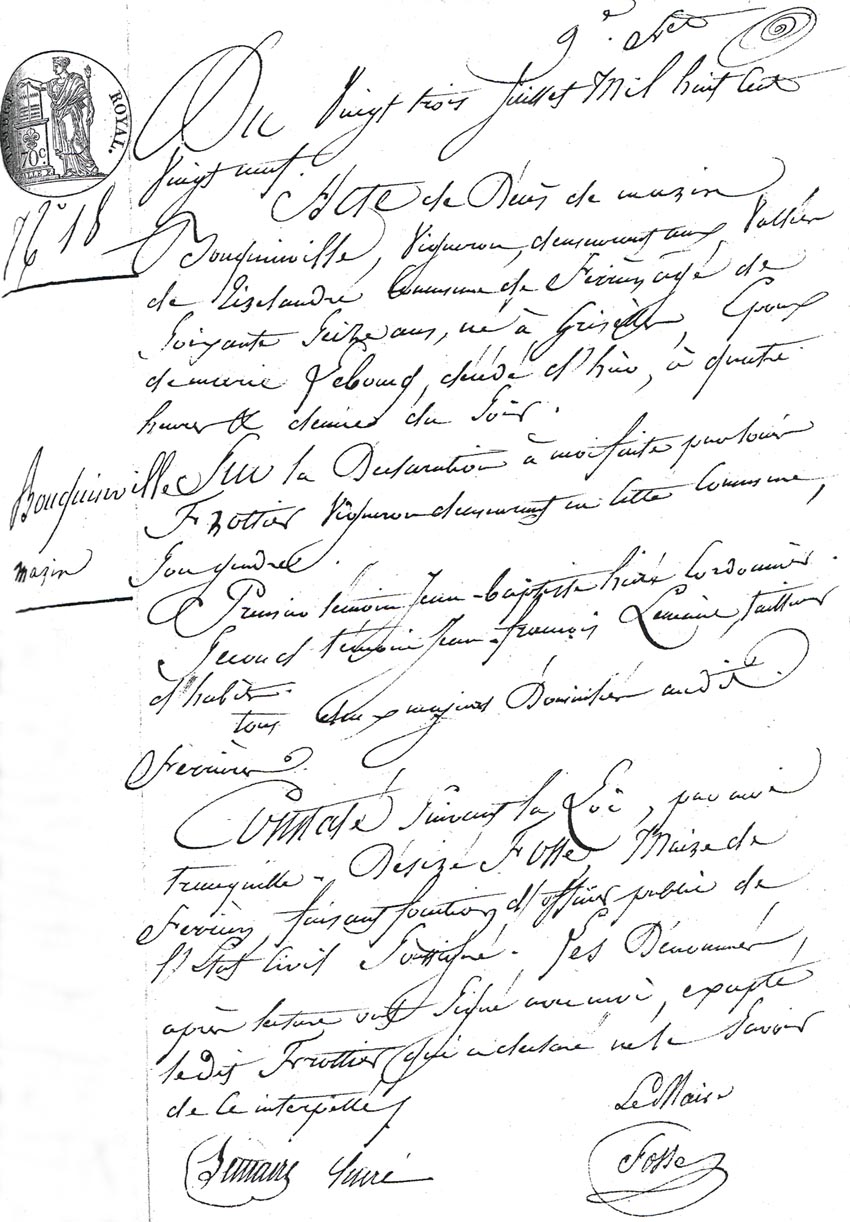 9.e f.et
ROYAL.
70c.
Du Vingt trois Juillet Mil huit Cent
Vingt neuf.
N.o 18
Acte de Décès de mazin
Bouquinville, Vigneron, demeurant aux Vallées
de Lizelandre Commune de Ferrières, agé de
Soixante Seize ans, né à Griselles, Epoux
de marie Lebourg, décédé d'hier, à quatre
heures & demies du Soir.
Bouquinville
mazin
Sur la Déclaration à moi faite par louis
Frottier Vigneron demeurant en Cette Commune,
Son gendre.
Premier temoin Jean-baptiste Cordonnier.
Second témoin Jean-françois Lemaire, tailleur
d'habits.
tous deux majeurs Domiciliés audit
Ferrières.
Constaté Suivant la Loi, par moi
tranquille-Désiré Fosse, Maire de
Ferrières, faisant fonctions d'officier public de
l'Etat Civil Soussigné. Les Dénommés,
après lecture ont Signé avec moi, excepté
ledit Frottier, qui a déclaré ne le Savoir
de Ce interpellé
Le Maire
Lemaire
Fosse